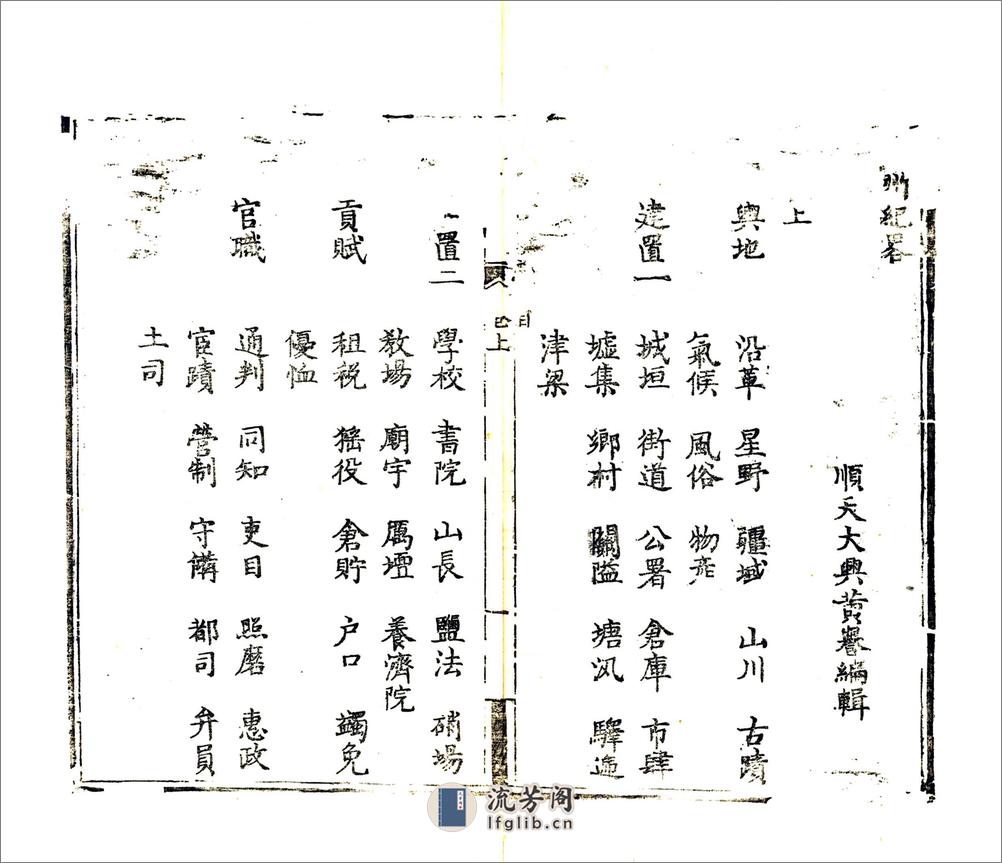 州紀畧
上
順天大興黄巻編輯
輿地 沿革 星野 疆域 山川 古蹟
氣候 風俗 物產
建置一 城垣 街道 公署 倉庫 市肆
墟集 鄉村 關隘 塘汛 驛逓
津梁
目 上
置二 學校 書院 山長 鹽法 硝場
教場 廟宇 厲壇 養濟院
貢賦 租税 猺役 倉貯 户口 蠲免
優恤
官職 通判 同知 吏目 照磨 惠政
宦蹟 營制 守備 都司 弁員
土司
流芳阁
lfglib.cn